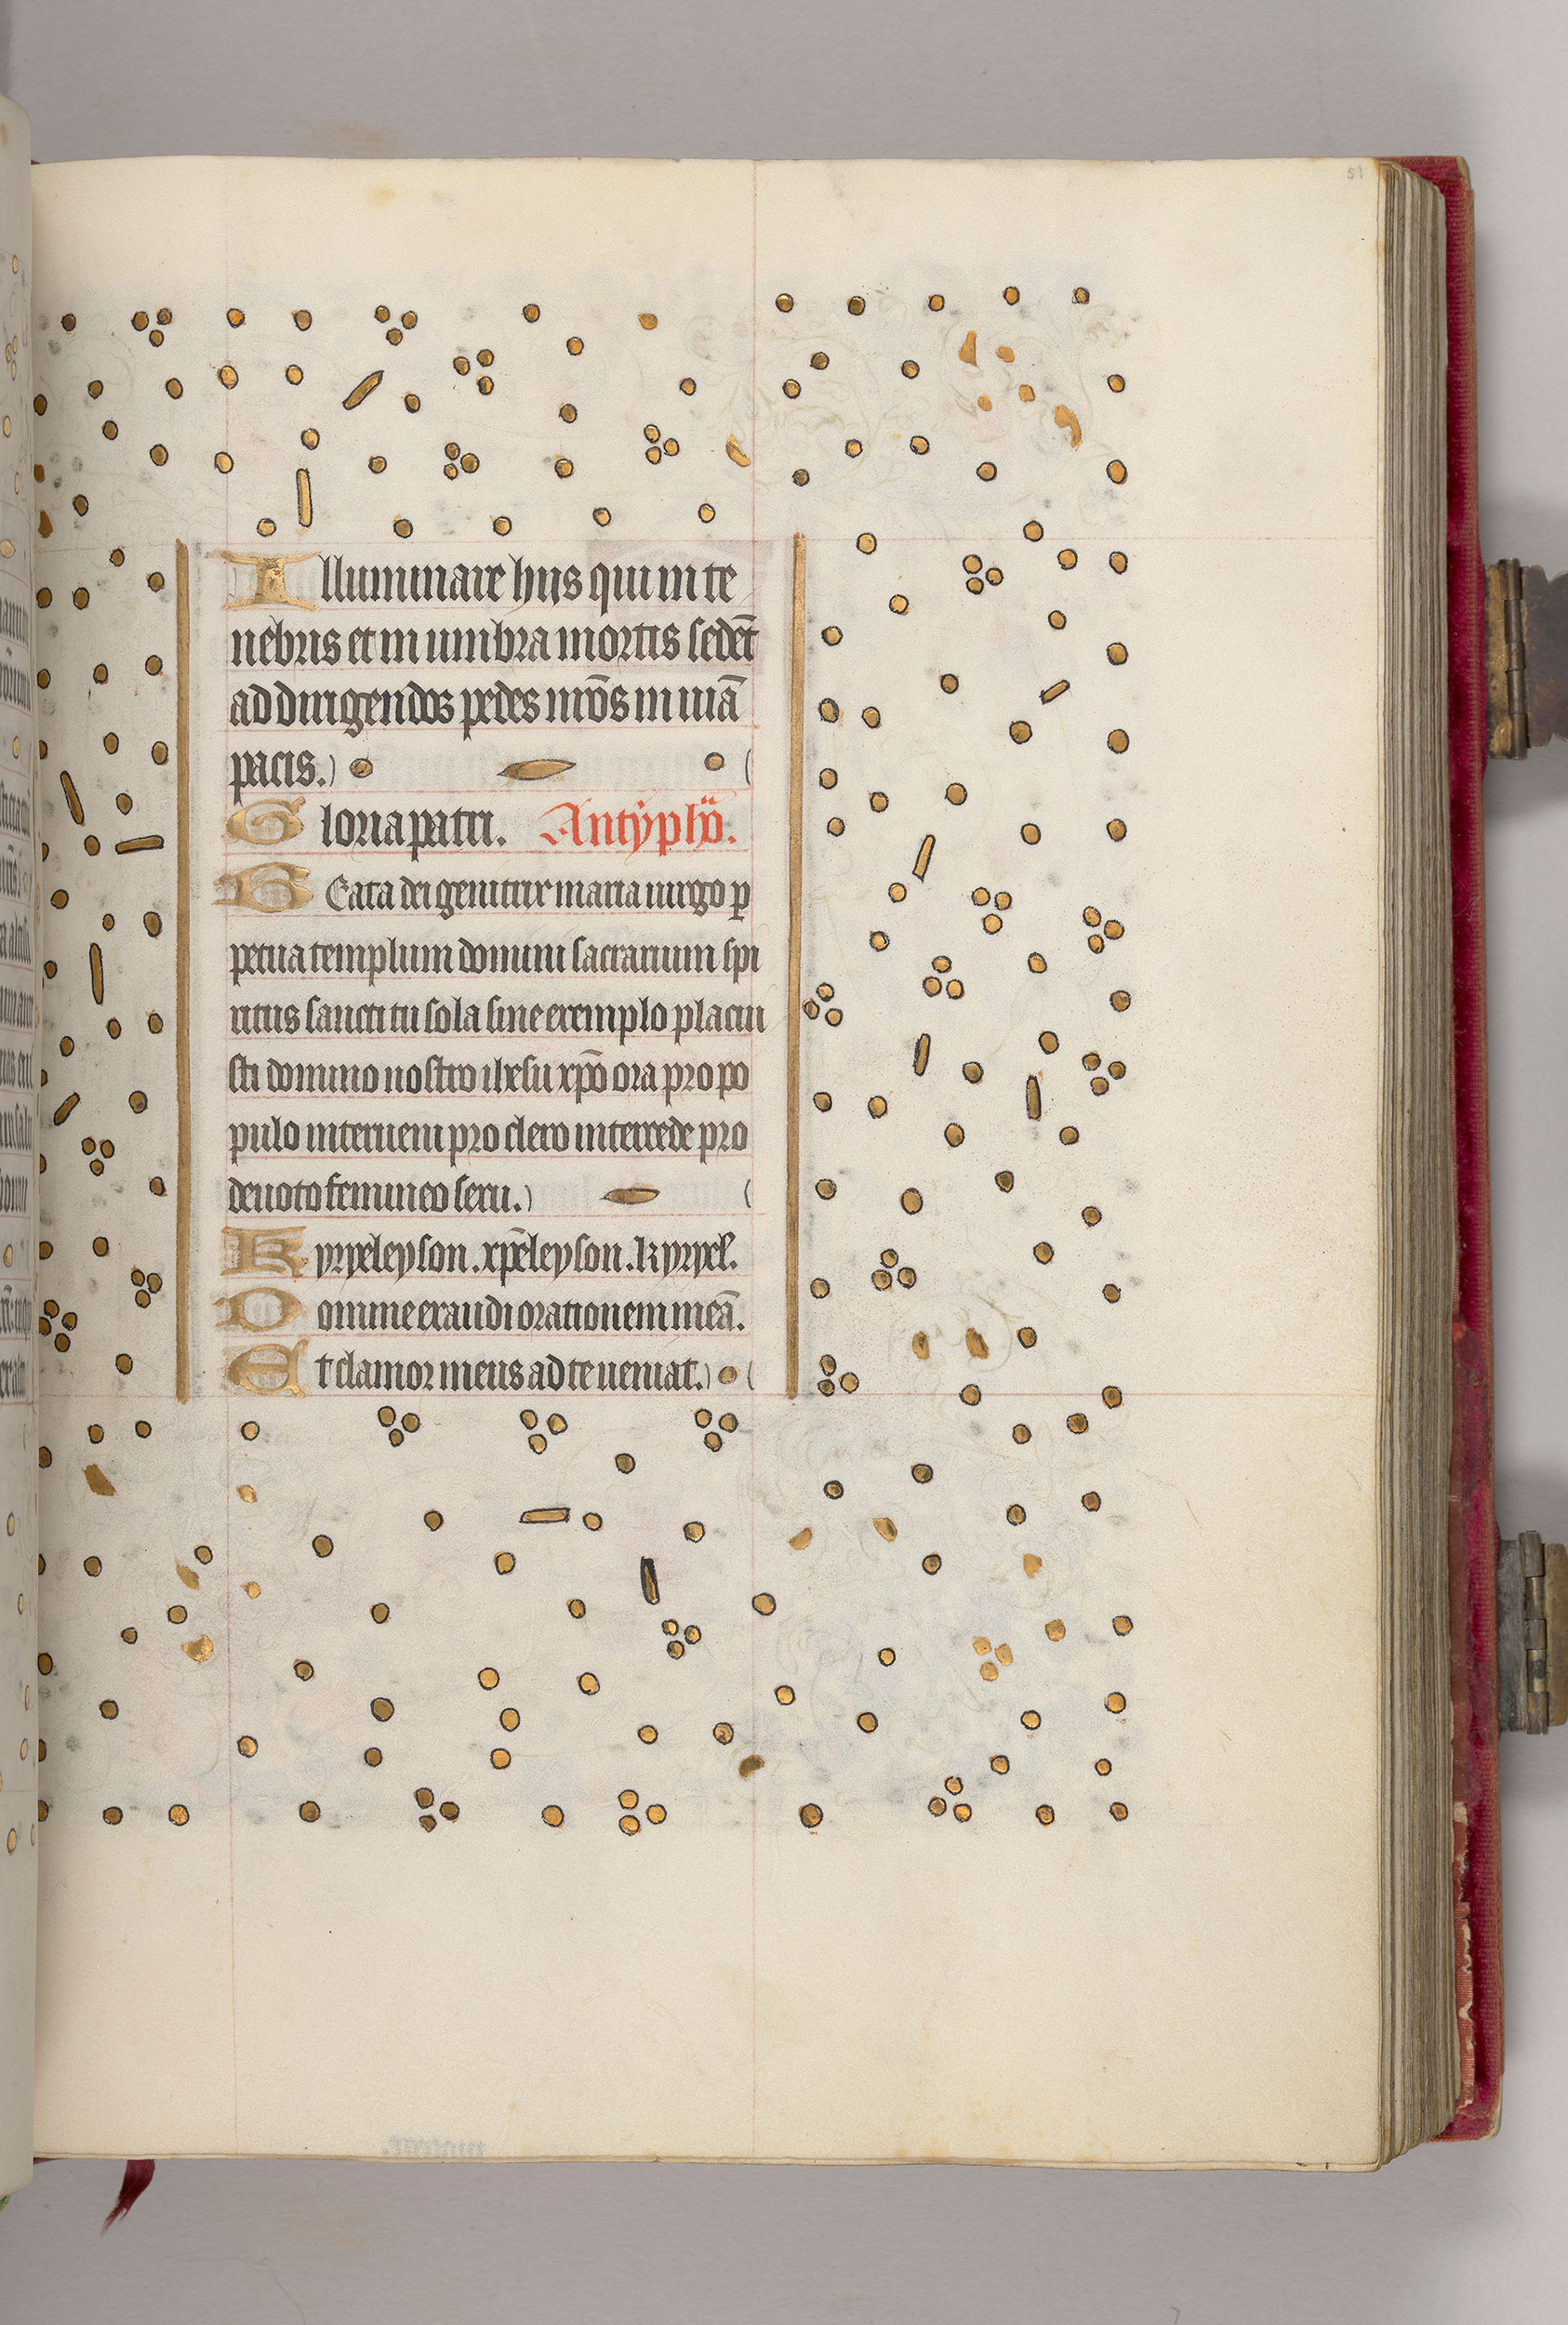 Illuminare hiis qui in te
nebris et in umbra mortis sedēt
ad dirigendos pedes nr̄os in uiā
pacis.
Gloria patri. Antyph̄o.
BEata dei genitrix maria uirgo ꝑ
petua templum domini sacrarium spi
ritus sancti tu sola sine exemplo placui
sti domino nostro ihesu xp̄o ora pro po
pulo interueni pro clero intercede pro
deuoto femineo sexu.
Kyryeleyson. xp̄eleyson. kyryel̄.
Domine exaudi orationem meā.
Et clamor meus ad te ueniat.
51